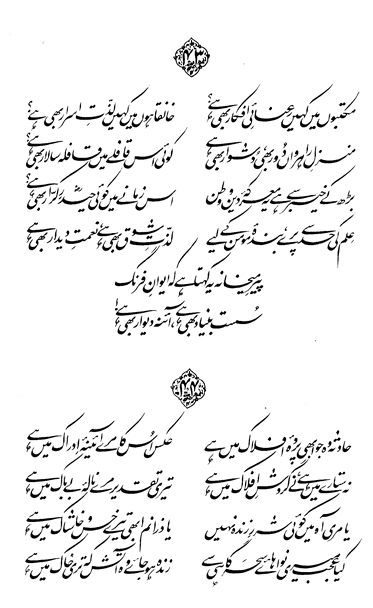 ۴۳
مکتبوں میں کہیں رعنائیِ افکار بھی ہے؟ خانقاہوں میں کہیں لذّتِ اسرار بھی ہے؟
منزلِ راہرواں دُور بھی، دشوار بھی ہے کوئی اس قافلے میں قافلہ سالار بھی ہے؟
بڑھ کے خیبر سے ہے یہ معرکۂ دین و وطن اس زمانے میں کوئی حیدرِؓ کرّار بھی ہے؟
عِلم کی حد سے پرے، بندۂ مومن کے لیے لذّتِ شوق بھی ہے، نعمتِ دیدار بھی ہے
پیرِ میخانہ یہ کہتا ہے کہ ایوانِ فرنگ
سُست بنیاد بھی ہے، آئنہ دیوار بھی ہے!
۴۴
حادثہ وہ جو ابھی پردۂ افلاک میں ہے عکس اُس کا مرے آئینۂ ادراک میں ہے
نہ ستارے میں ہے، نے گردشِ افلاک میں ہے تیری تقدیر مرے نالۂ بے باک میں ہے
یا مری آہ میں کوئی شررِ زندہ نہیں یا ذرا نم ابھی تیرے خس و خاشاک میں ہے
کیا عجب میری نواہائے سحر گاہی سے زندہ ہو جائے وہ آتش کہ تری خاک میں ہے